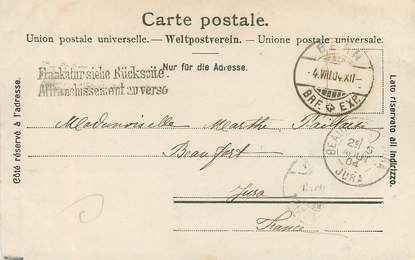 Carte postale.
Union postale universelle. — Weltpostverein. — Unione postale universale.
Nur für die Adresse.
Frankatur siehe Rückseite.
Affranchissement au verso
BERN
-4.VIII.04.XII-
BRF. EXP.
Côté réservé à l'adresse.
Lato riservato all indirizzo.
Mademoiselle Marthe
Beaufort
Jura
France
JURA
04